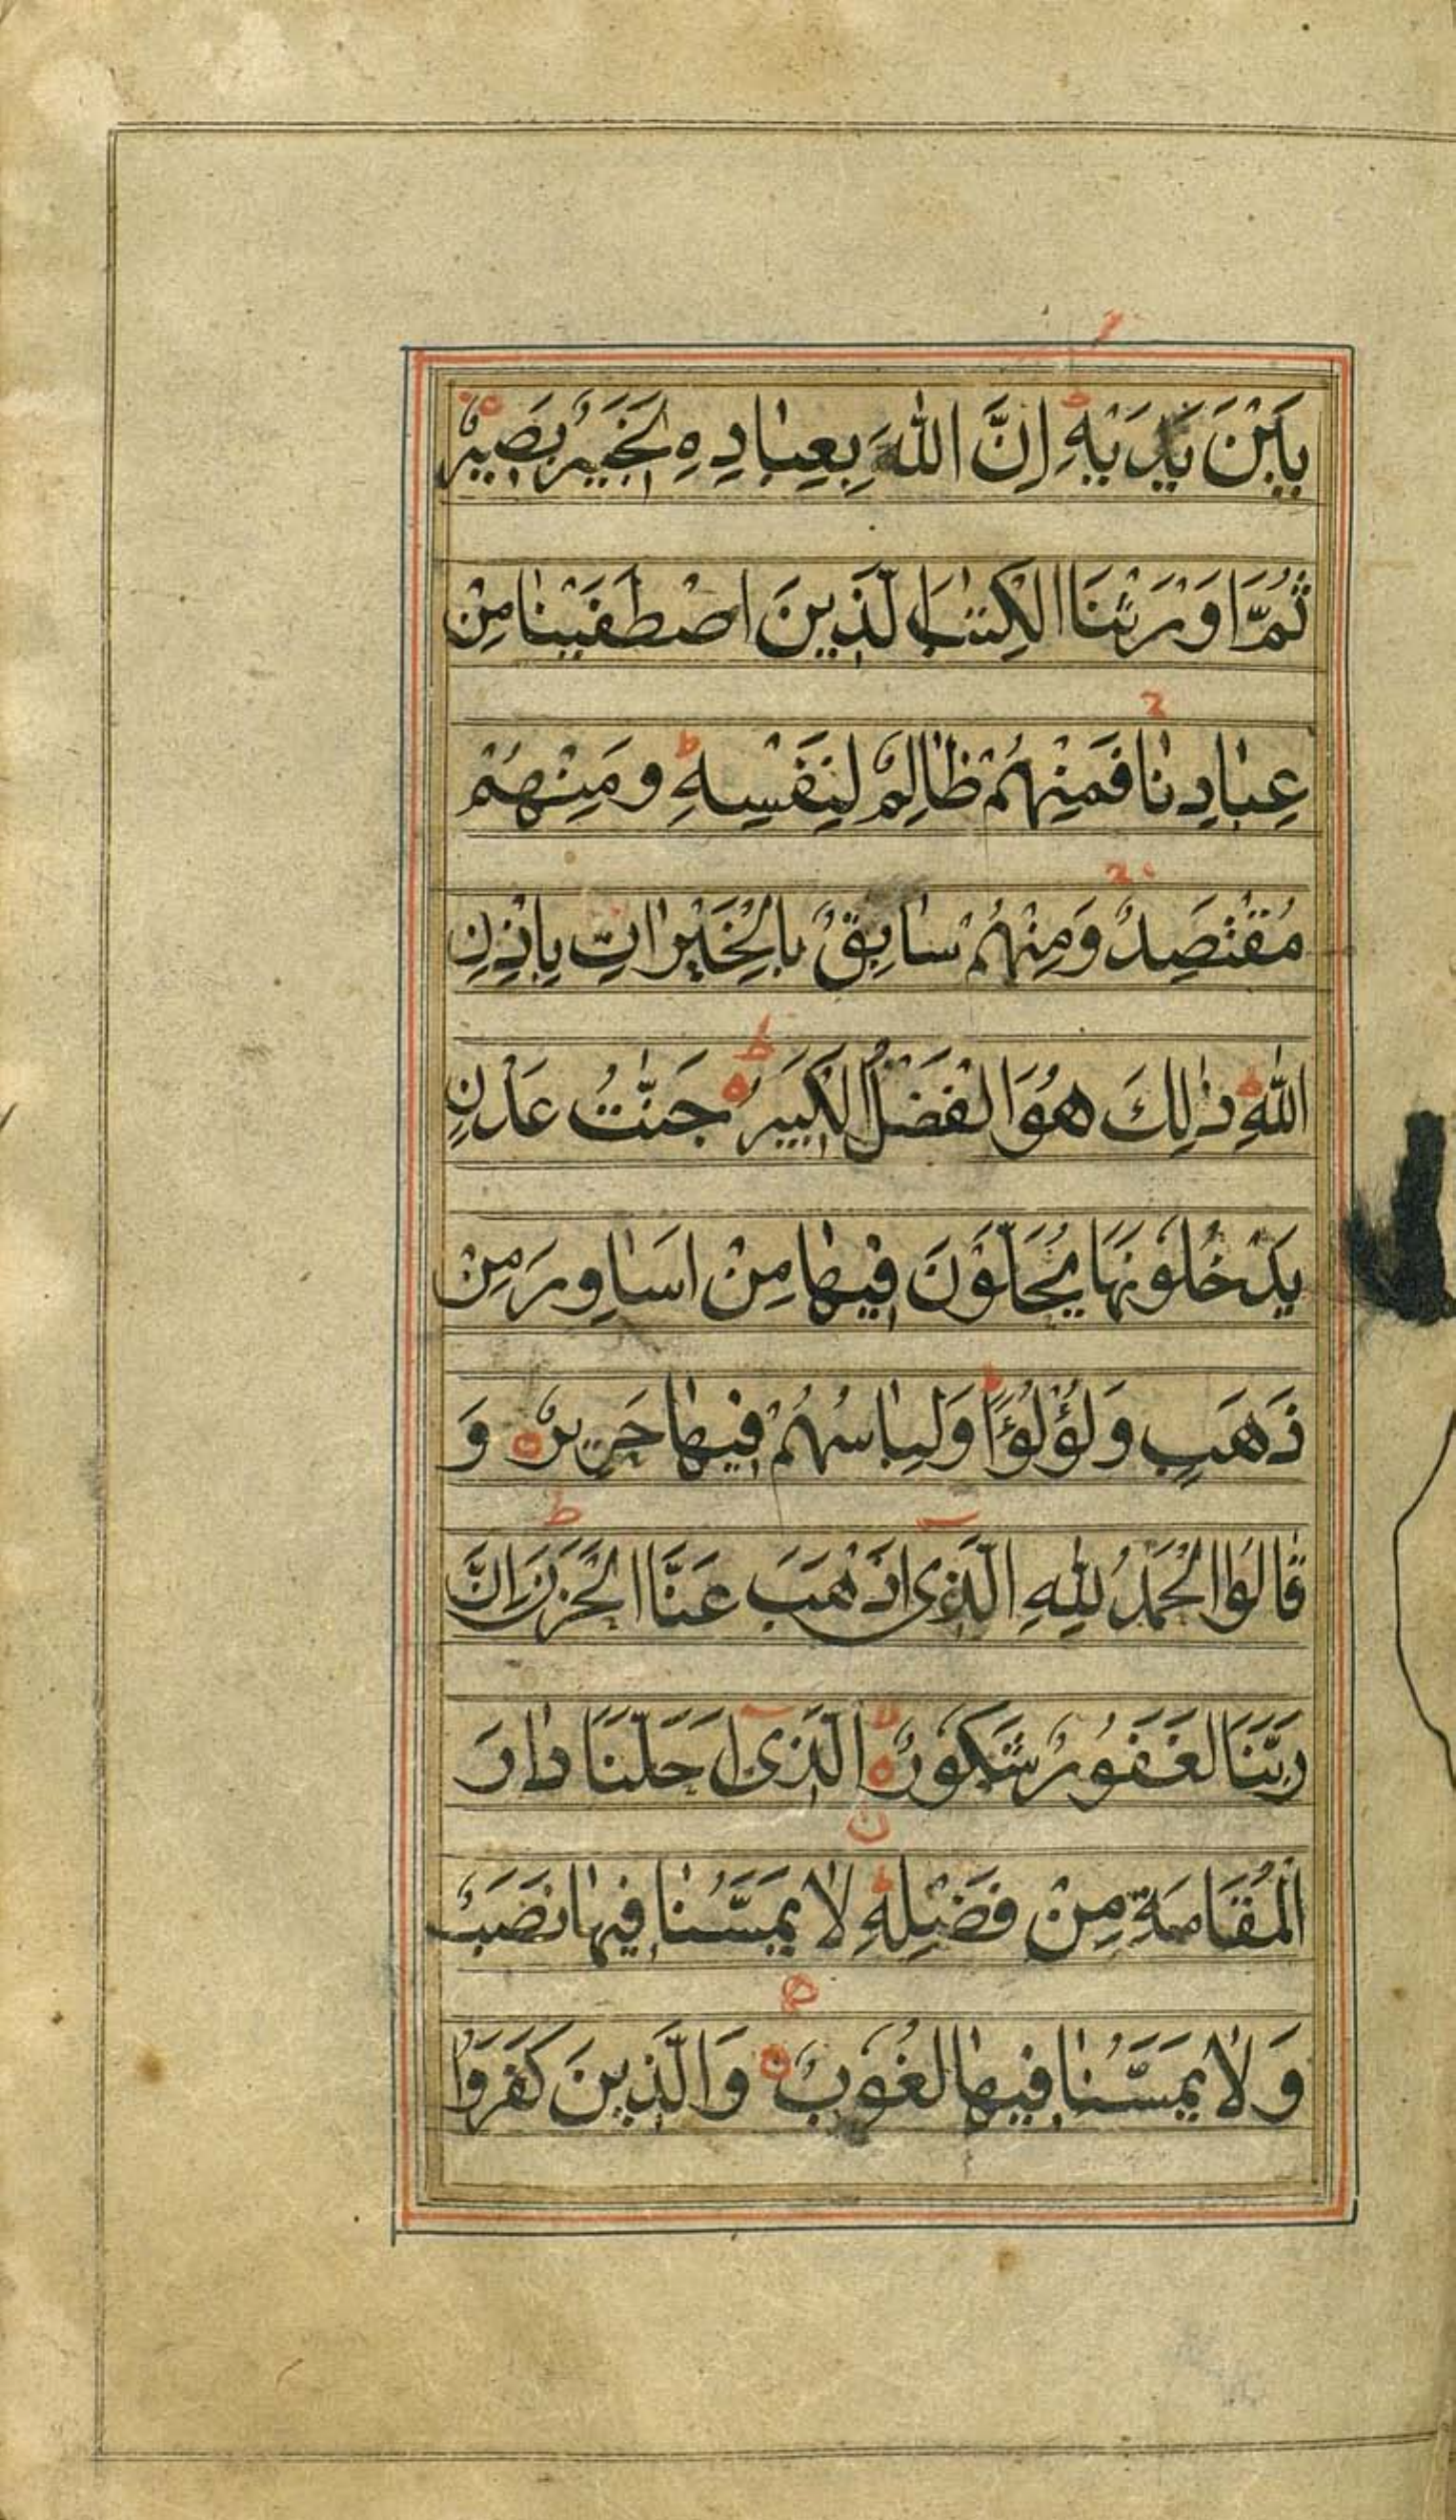 بَيْنَ يَدَيْهِ اِنَّ اللّٰهَ بِعِبٰادِهٖ لَخَبِيْرٌ بَصِيْرٌ
ثُمَّ اَوْرَثْنَا الْكِتٰبَ الَّذِينَ اصْطَفَيْنٰا مِنْ
عِبٰادِنٰا فَمِنْهُمْ ظٰالِمٌ لِنَفْسِهٖ ط وَمِنْهُمْ
مُقْتَصِدٌ وَمِنْهُمْ سٰابِقٌ بِالْخَيْرٰاتِ بِاِذْنِ
اللّٰهِ ذٰلِكَ هُوَ الْفَضْلُ الْكَبِيرُ ط جَنّٰتُ عَدْنٍ
يَدْخُلُونَهَا يُحَلَّوْنَ فِيهٰا مِنْ اَسٰاوِرَ مِنْ
ذَهَبٍ وَلُؤْلُؤًا وَلِبٰاسُهُمْ فِيهٰا حَرِيرٌ وَ
قٰالُوا الْحَمْدُ لِلّٰهِ الَّذِىٓ اَذْهَبَ عَنَّا الْحَزَنَ ط اِنَّ
رَبَّنَا لَغَفُورٌ شَكُورٌ لا الَّذِىٓ اَحَلَّنَا دٰارَ
الْمُقَامَةِ مِنْ فَضْلِهٖ لٰا يَمَسُّنٰا فِيهٰا نَصَبٌ
وَلٰا يَمَسُّنٰا فِيهٰا لُغُوبٌ وَالَّذِينَ كَفَرُوْا